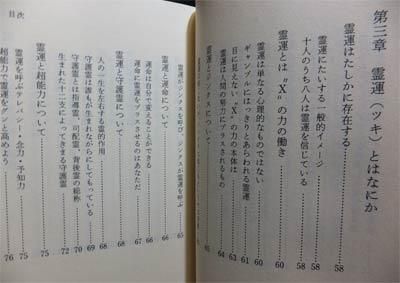 第三章 霊運(ツキ)とはなにか
霊運はたしかに存在する……58
霊運にたいする一般的イメージ……58
十人のうち八人は霊運を信じている……58
霊運とは“X”の力の働き……60
霊運は単なる心理的なものではない……60
ギャンブルにはっきりとあらわれる霊運……61
目に見えない“X”の力の本体は……63
霊運は人間の努力にプラスされるもの……64
霊運とジンクスについて……65
霊運がジンクスを呼び、ジンクスが霊運を呼ぶ……65
霊運と運命について……66
運命は自分で変えることができる……66
運命に霊運をプラスさせるのはあなただ……67
霊運と守護霊について……68
人の一生を左右する霊的作用……68
守護霊は誰もが生まれながらにしてもっている……69
守護霊とは指導霊、司配霊、背後霊の総称……70
生まれた十二支によってきまる守護霊……72
霊運と超能力について……75
霊運を呼ぶテレパシー・念力・予知力……75
超能力で霊運をグンと高めよう……76
目次